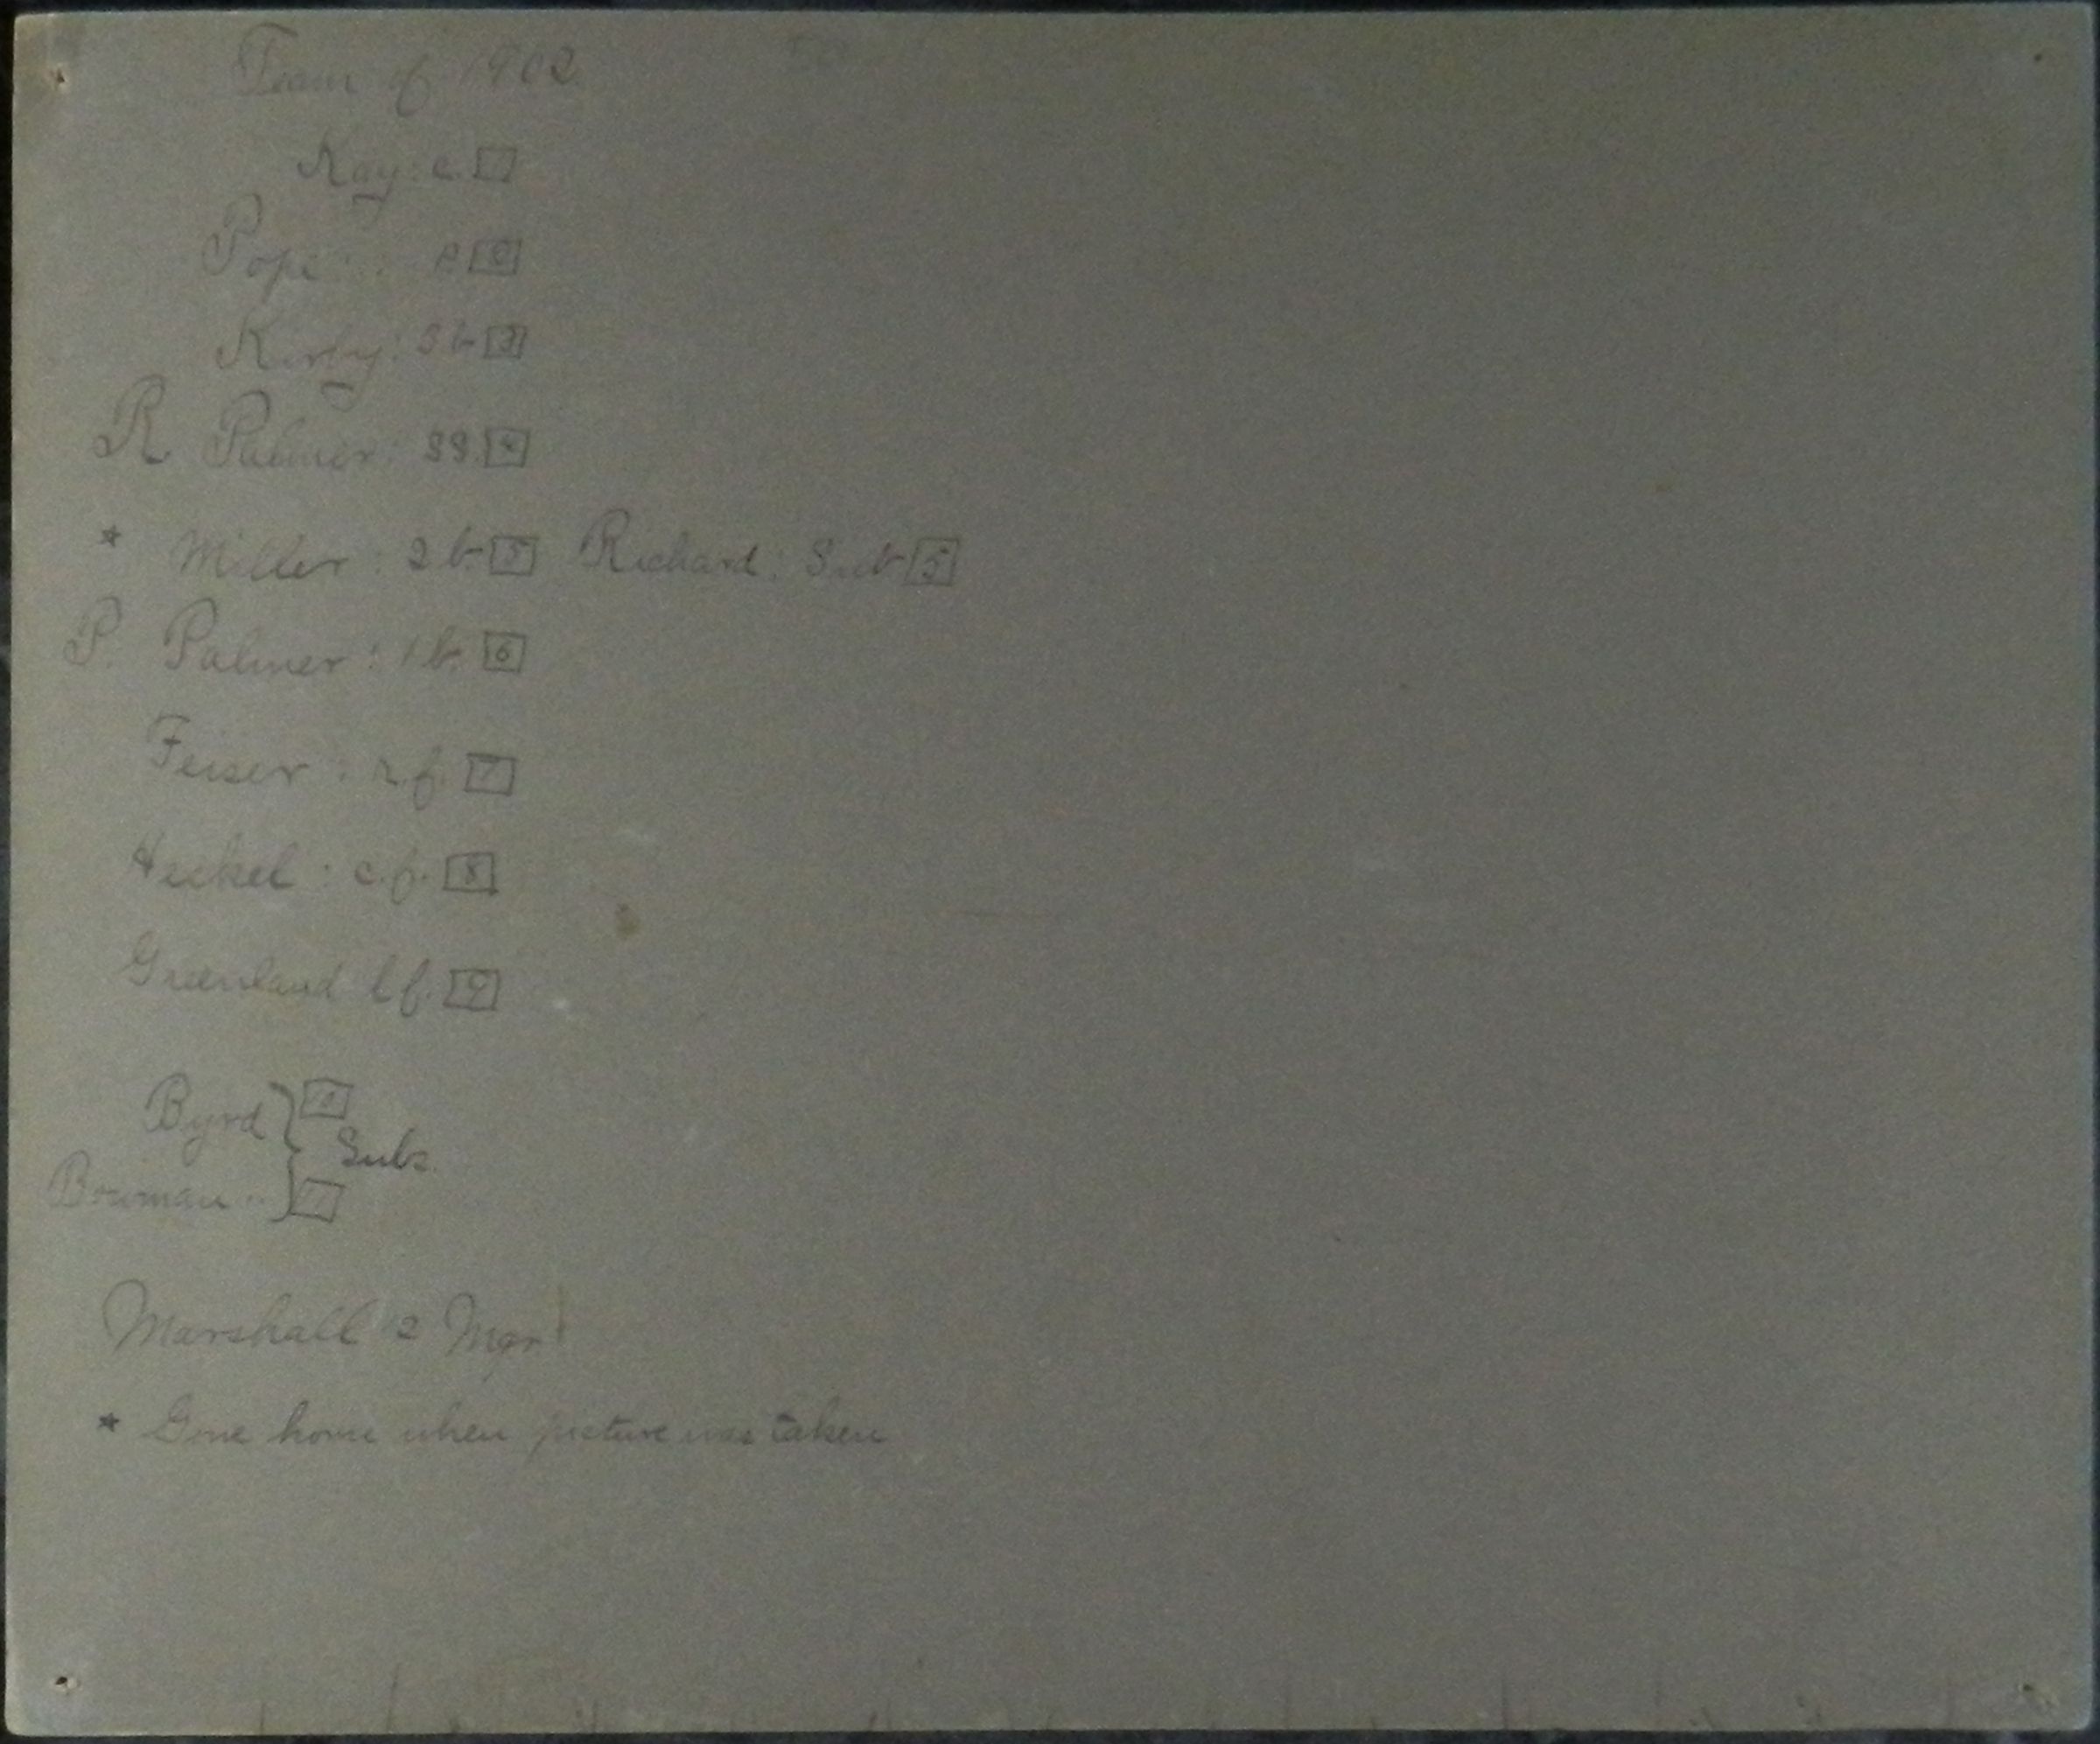 Team of 1902
Kay: c. 1
Pope: p 2
Kirby: 3b 3
R Palmer: SS. 4
* Miller: 2b 5 Richard: Sub 5
P. Palmer: 1b. 6
Feiser: r.f. 7
Heikel: c.f. 8
Greenland l f. 9
Byrd 10
Subs.
Bowman
Marshall 12 Mgr
* Gone home when picture was taken